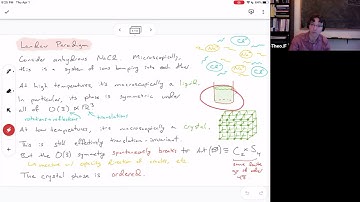 8:28 PM Thu Apr 1
Landau Paradigm
Consider anhydrous NaCl. Microscopically,
this is a system of ions bumping into each other.
At high temperatures, it's macroscopically a liquid.
In particular, its phase is symmetric under
all of O(3) ⋉ ℝ³
rotations + reflections
translations
At low temperatures, it's macroscopically a crystal.
This is still effectively translation-invariant.
But the O(3) symmetry spontaneously breaks to
C₂ × S₄
finite
of order
48
The crystal phase is ordered.
Theo JF